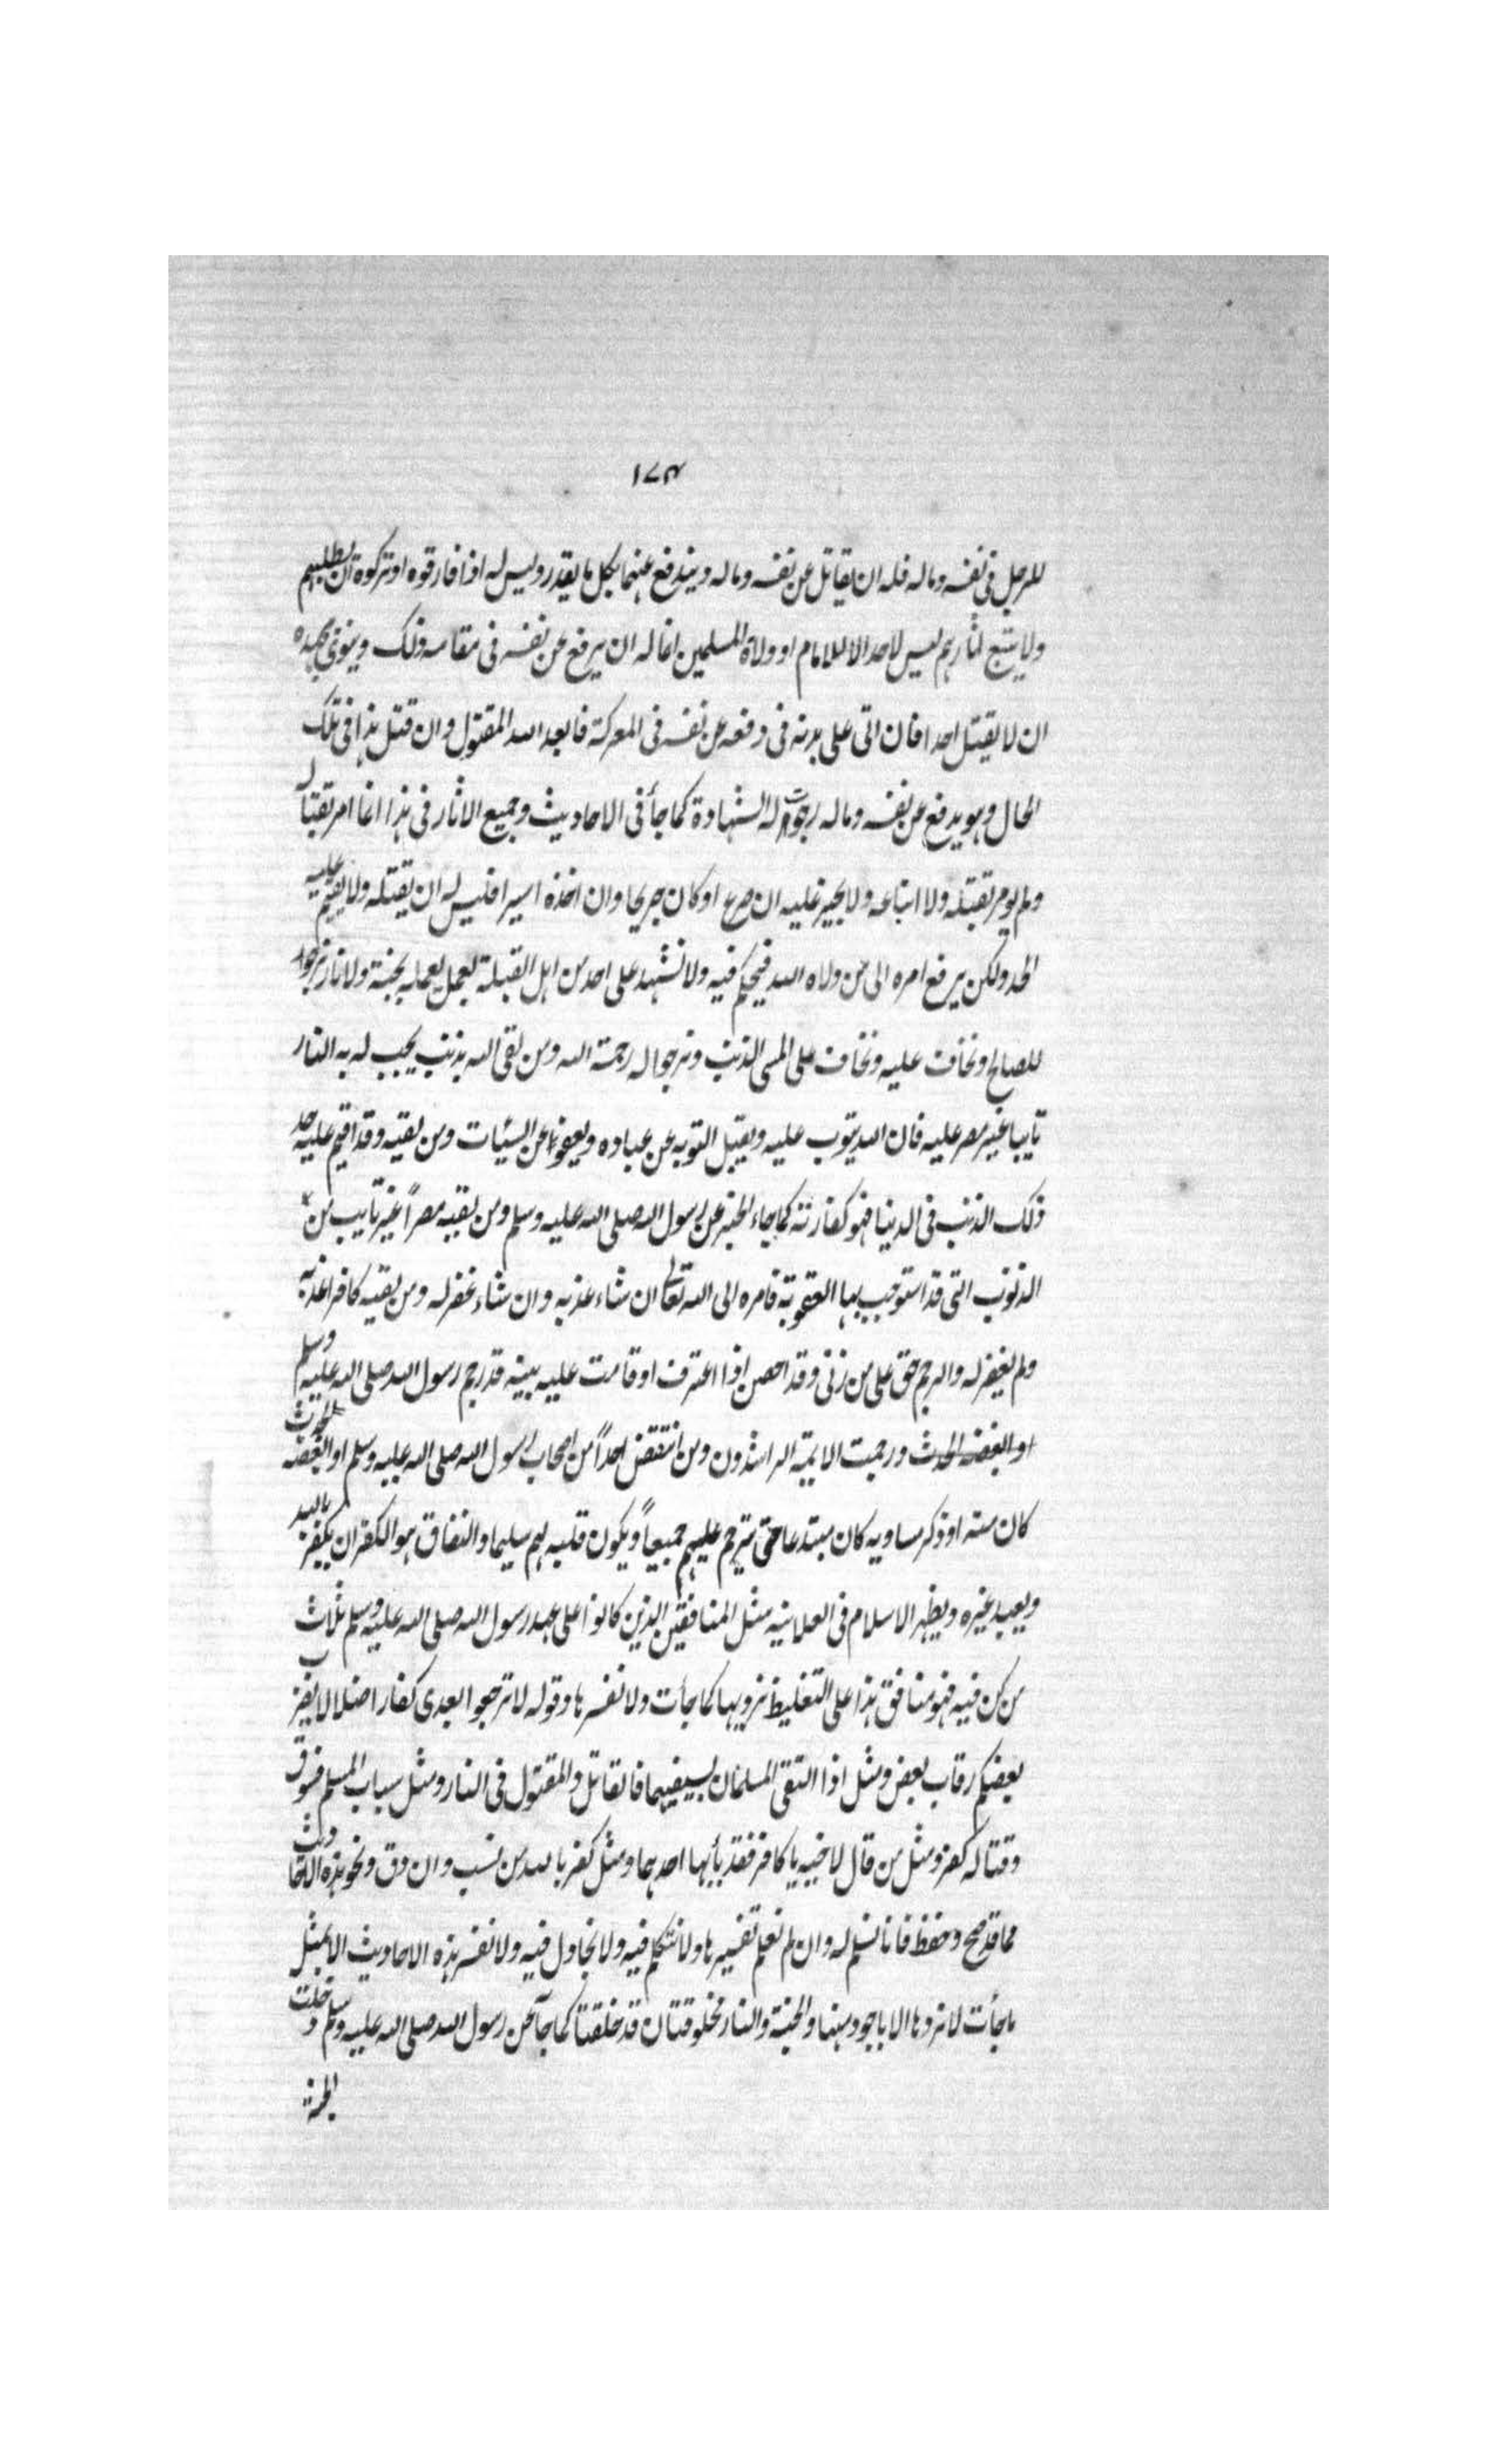 ١٧٤
للرجل فى نفسه وماله فله ان يقاتل عن نفسه وماله ويدفع عنهما بكل ما يقدر وليس له اذا فارقوه او تركوه ان يطلبهم
ولا يتبع اثارهم ليس لاحد الا للامام او ولاة المسلمين انما له ان يرفع عن نفسه فى مقامه ذلك وينوى بجهده
ان لا يقتل احدا فان اتى على بدنه فى دفعه عن نفسه فى المعركة فابعد الله المقتول وان قتل هذا فى تلك
الحال وهو يدفع عن نفسه وماله رجوت له الشهادة كما جأ فى الاحاديث وجميع الاثار فى هذا انما امر بقتاله
ولم يومر بقتله ولا اتباعه ولا يجيز عليه ان صرع او كان جريحا وان اخذه اسيرا فليس له ان يقتله ولا يقيم عليه
الحد ولكن يرفع امره الى من ولاه الله فيحكم فيه ولا نشهد على احد من اهل القبلة بعمل يعمله بجنة ولا نار نرجوا
للصالح ونخاف عليه ونخاف على المسى المذنب ونرجوا له رحمة الله ومن لقى الله بذنب يجب له به النار
تايبا غير مصر عليه فان الله يتوب عليه ويقبل التوبه عن عباده ويعفوا عن السيئات ومن لقيه وقد اقيم عليه حد
ذلك الذنب فى الدنيا فهو كفارته كما جاء الخبر عن رسول الله صلى الله عليه وسلم ومن لقيه مصراً غير تايب من
الذنوب التى قد استوجب بها العقوبة فامره الى الله تعالى ان شاء عذبه وان شاء غفر له ومن لقيه كافرا عذبه
ولم يغفر له والرجم حق على من زنى وقد احصن اذا اعترف او قامت عليه بينه قد رجم رسول الله صلى الله عليه وسلم
او ابغضه الحدث ورجمت الايمة الراشدون ومن انتقض احداً من اصحاب رسول الله صلى الله عليه وسلم او ابغضه لحدث
كان منه او ذكر مساويه كان مبتدعا حتى يترحم عليهم جميعاً ويكون قلبه لهم سليما والنفاق هو الكفر ان يكفر بالله
ويعبد غيره ويظهر الاسلام فى العلانيه مثل المنافقين الذين كانوا على عهد رسول الله صلى الله عليه وسلم ثلاث
من كن فيه فهو منافق هذا على التغليظ نرويها كما جأت ولا نفسرها وقوله لا ترجعوا بعدى كفارا ضلالا يضرب
بعضكم رقاب بعض ومثل اذا التقى المسلمان بسيفيهما فالقاتل والمقتول فى النار ومثل سباب المسلم فسوق
وقتاله كفر ومثل من قال لاخيه يا كافر فقد بأ بها احدهما ومثل كفر بالله من نسب وان دق ونحو هذه الاحاديث
مما قد صح وحفظ فانا نسلم له وان لم نعلم تفسيرها ولا نتكلم فيه ولا نجادل فيه ولا نفسر هذه الاحاديث الا بمثل
ما جأت لا نردها الا باجود منها والجنة والنار مخلوقتان قد خلقتا كما جآ عن رسول الله صلى الله عليه وسلم دخلت
الجنة